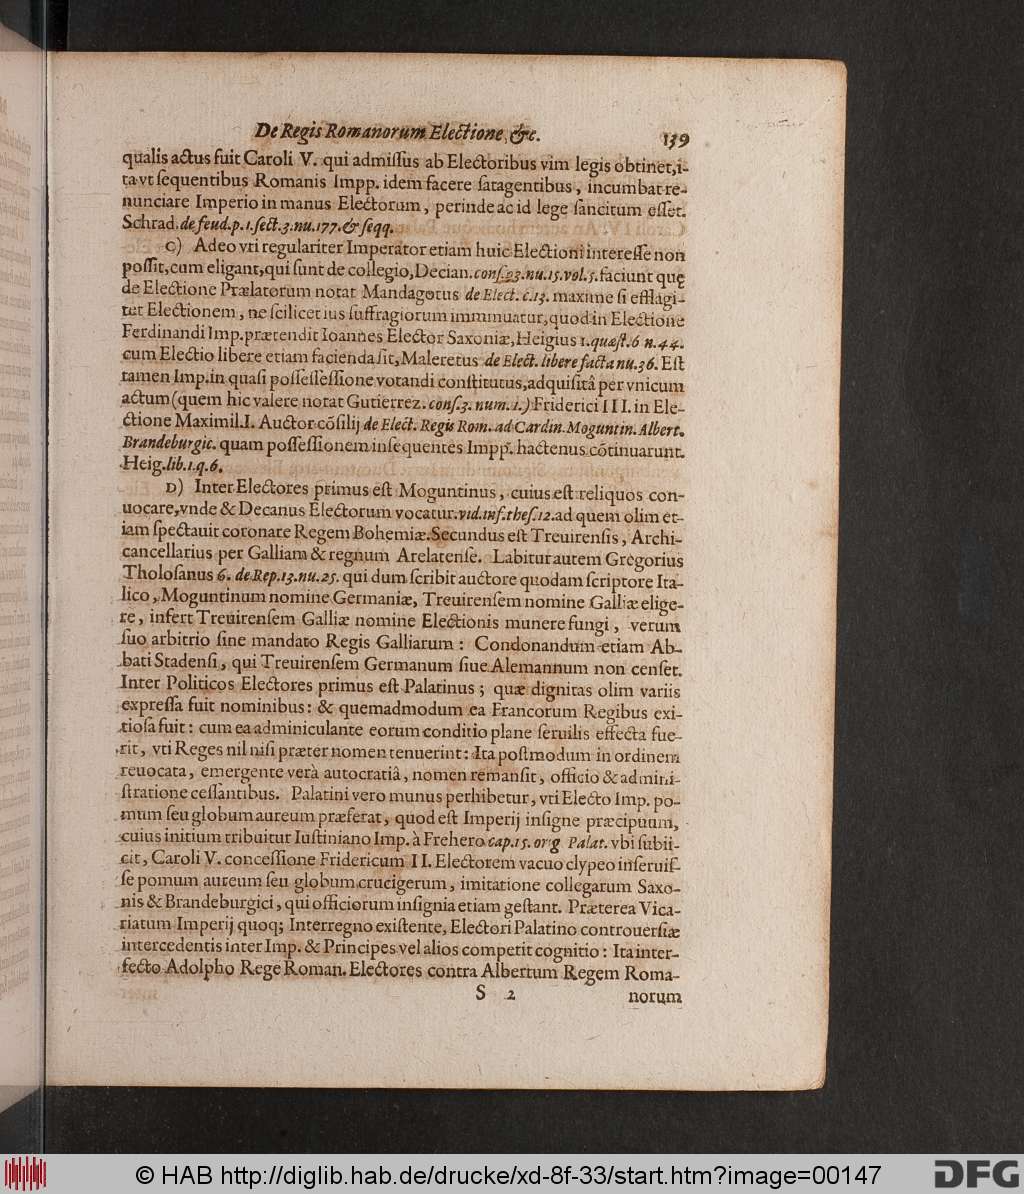 De Regis Romanorum Electione, &c. 139
qualis actus fuit Caroli V. qui admiſſus ab Electoribus vim legis obtinet, i-
ta vt ſequentibus Romanis Impp. idem facere ſatagentibus, incumbat re-
nunciare Imperio in manus Electorum, perinde ac id lege ſancitum eſſet.
Schrad. de feud. p. 1. ſect. 3. nu. 177. & ſeqq.
C) Adeo vti regulariter Imperator etiam huic Electioni intereſſe non
poſſit, cum eligant, qui ſunt de collegio, Decian. conſ. 93. nu. 15. vol. 5. faciunt quę
de Electione Prælatorum notat Mandagotus de Elect. c. 13. maxime ſi efflagi-
tet Electionem, ne ſcilicet ius ſuffragiorum imminuatur, quod in Electione
Ferdinandi Imp. prætendit Ioannes Elector Saxoniæ, Heigius 1. quæſt. 6 n. 44.
cum Electio libere etiam facienda ſit, Maleretus de Elect. libere facta nu. 36. Eſt
tamen Imp. in quaſi poſſeſſeſſione votandi conſtitutus, adquiſitâ per vnicum
actum (quem hic valere notat Gutierrez. conſ. 3. num. 1.) Friderici III. in Ele-
ctione Maximil. I. Auctor cõſilij de Elect. Regis Rom. ad Cardin. Moguntin. Albert.
Brandeburgic. quam poſſeſſionem inſequentes Impp. hactenus cõtinuarunt.
Heig. lib. 1. q. 6.
D) Inter Electores primus eſt Moguntinus, cuius eſt reliquos con-
uocare, vnde & Decanus Electorum vocatur. vid. inf. theſ. 12. ad quem olim et-
iam ſpectauit coronare Regem Bohemiæ. Secundus eſt Treuirenſis, Archi-
cancellarius per Galliam & regnum Arelatenſe. Labitur autem Gregorius
Tholoſanus 6. de Rep. 13. nu. 25. qui dum ſcribit auctore quodam ſcriptore Ita-
lico, Moguntinum nomine Germaniæ, Treuirenſem nomine Galliæ elige-
re, infert Treuirenſem Galliæ nomine Electionis munere fungi, verum
ſuo arbitrio ſine mandato Regis Galliarum: Condonandum etiam Ab-
bati Stadenſi, qui Treuirenſem Germanum ſiue Alemannum non cenſet.
Inter Politicos Electores primus eſt Palatinus; quæ dignitas olim variis
expreſſa fuit nominibus: & quemadmodum ea Francorum Regibus exi-
tioſa fuit: cum ea adminiculante eorum conditio plane ſeruilis effecta fue-
rit, vti Reges nil niſi præter nomen tenuerint: Ita poſtmodum in ordinem
reuocata, emergente verà autocratiâ, nomen remanſit, officio & admini-
ſtratione ceſſantibus. Palatini vero munus perhibetur, vti Electo Imp. po-
mum ſeu globum aureum præferat, quod eſt Imperij inſigne præcipuum,
cuius initium tribuitur Iuſtiniano Imp. à Frehero cap. 15. org Palat. vbi ſubii-
cit, Caroli V. conceſſione Fridericum II. Electorem vacuo clypeo inſeruiſ-
ſe pomum aureum ſeu globum crucigerum, imitatione collegarum Saxo-
nis & Brandeburgici, qui officiorum inſignia etiam geſtant. Præterea Vica-
riatum Imperij quoq; Interregno exiſtente, Electori Palatino controuerſiæ
intercedentis inter Imp. & Principes vel alios competit cognitio: Ita inter-
fecto Adolpho Rege Roman. Electores contra Albertum Regem Roma-
S 2 norum
© HAB http://diglib.hab.de/drucke/xd-8f-33/start.htm?image=00147
DFG